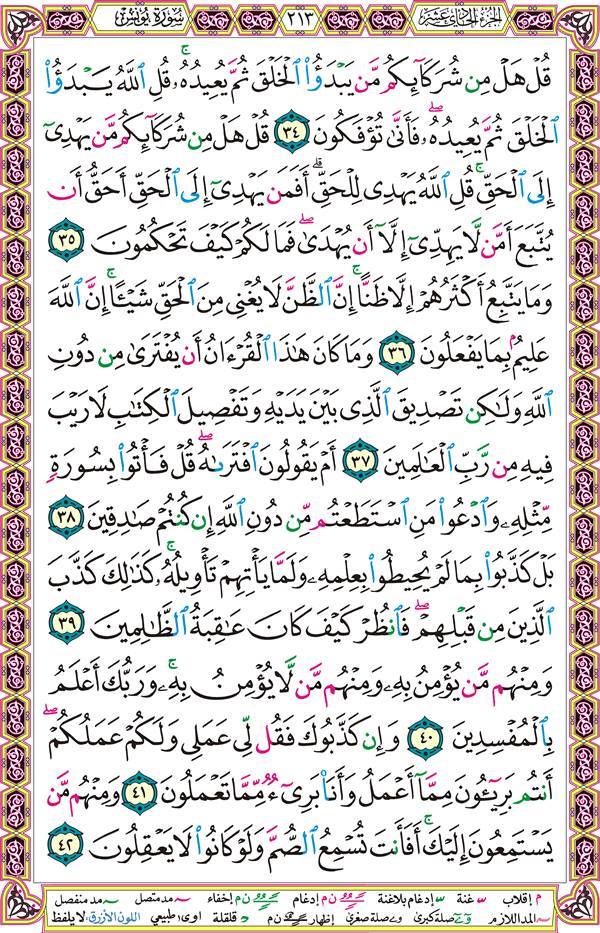 الجزء الحادي عشر ٢١٣ سورة يونس
قُلْ هَلْ مِن شُرَكَآئِكُم مَّن يَبْدَؤُا۟ ٱلْخَلْقَ ثُمَّ يُعِيدُهُۥ ۚ قُلِ ٱللَّهُ يَبْدَؤُا۟
ٱلْخَلْقَ ثُمَّ يُعِيدُهُۥ ۖ فَأَنَّىٰ تُؤْفَكُونَ ٣٤ قُلْ هَلْ مِن شُرَكَآئِكُم مَّن يَهْدِىٓ
إِلَى ٱلْحَقِّ ۚ قُلِ ٱللَّهُ يَهْدِى لِلْحَقِّ ۗ أَفَمَن يَهْدِىٓ إِلَى ٱلْحَقِّ أَحَقُّ أَن
يُتَّبَعَ أَمَّن لَّا يَهِدِّىٓ إِلَّآ أَن يُهْدَىٰ ۖ فَمَا لَكُمْ كَيْفَ تَحْكُمُونَ ٣٥
وَمَا يَتَّبِعُ أَكْثَرُهُمْ إِلَّا ظَنًّا ۚ إِنَّ ٱلظَّنَّ لَا يُغْنِى مِنَ ٱلْحَقِّ شَيْـًٔا ۚ إِنَّ ٱللَّهَ
عَلِيمٌۢ بِمَا يَفْعَلُونَ ٣٦ وَمَا كَانَ هَٰذَا ٱلْقُرْءَانُ أَن يُفْتَرَىٰ مِن دُونِ
ٱللَّهِ وَلَٰكِن تَصْدِيقَ ٱلَّذِى بَيْنَ يَدَيْهِ وَتَفْصِيلَ ٱلْكِتَٰبِ لَا رَيْبَ
فِيهِ مِن رَّبِّ ٱلْعَٰلَمِينَ ٣٧ أَمْ يَقُولُونَ ٱفْتَرَىٰهُ ۖ قُلْ فَأْتُوا۟ بِسُورَةٍ
مِّثْلِهِۦ وَٱدْعُوا۟ مَنِ ٱسْتَطَعْتُم مِّن دُونِ ٱللَّهِ إِن كُنتُمْ صَٰدِقِينَ ٣٨
بَلْ كَذَّبُوا۟ بِمَا لَمْ يُحِيطُوا۟ بِعِلْمِهِۦ وَلَمَّا يَأْتِهِمْ تَأْوِيلُهُۥ ۚ كَذَٰلِكَ كَذَّبَ
ٱلَّذِينَ مِن قَبْلِهِمْ ۖ فَٱنظُرْ كَيْفَ كَانَ عَٰقِبَةُ ٱلظَّٰلِمِينَ ٣٩
وَمِنْهُم مَّن يُؤْمِنُ بِهِۦ وَمِنْهُم مَّن لَّا يُؤْمِنُ بِهِۦ ۚ وَرَبُّكَ أَعْلَمُ
بِٱلْمُفْسِدِينَ ٤٠ وَإِن كَذَّبُوكَ فَقُل لِّى عَمَلِى وَلَكُمْ عَمَلُكُمْ ۖ
أَنتُم بَرِيٓـُٔونَ مِمَّآ أَعْمَلُ وَأَنَا۠ بَرِىٓءٌ مِّمَّا تَعْمَلُونَ ٤١ وَمِنْهُم مَّن
يَسْتَمِعُونَ إِلَيْكَ ۚ أَفَأَنتَ تُسْمِعُ ٱلصُّمَّ وَلَوْ كَانُوا۟ لَا يَعْقِلُونَ ٤٢
م إقلاب غنة إدغام بلاغنة ن م إدغام ن م إخفاء مد متصل مد منفصل
المد اللازم صلة كبرى صلة صغرى إظهار ن م قلقلة اوى طبيعي اللون الأزرق: لا يلفظ